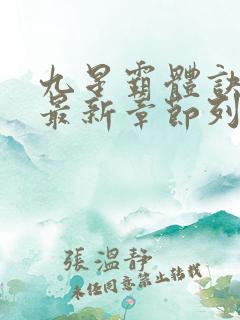 九星霸體訣
最新章節列
張溫靜
未经同意禁止转载